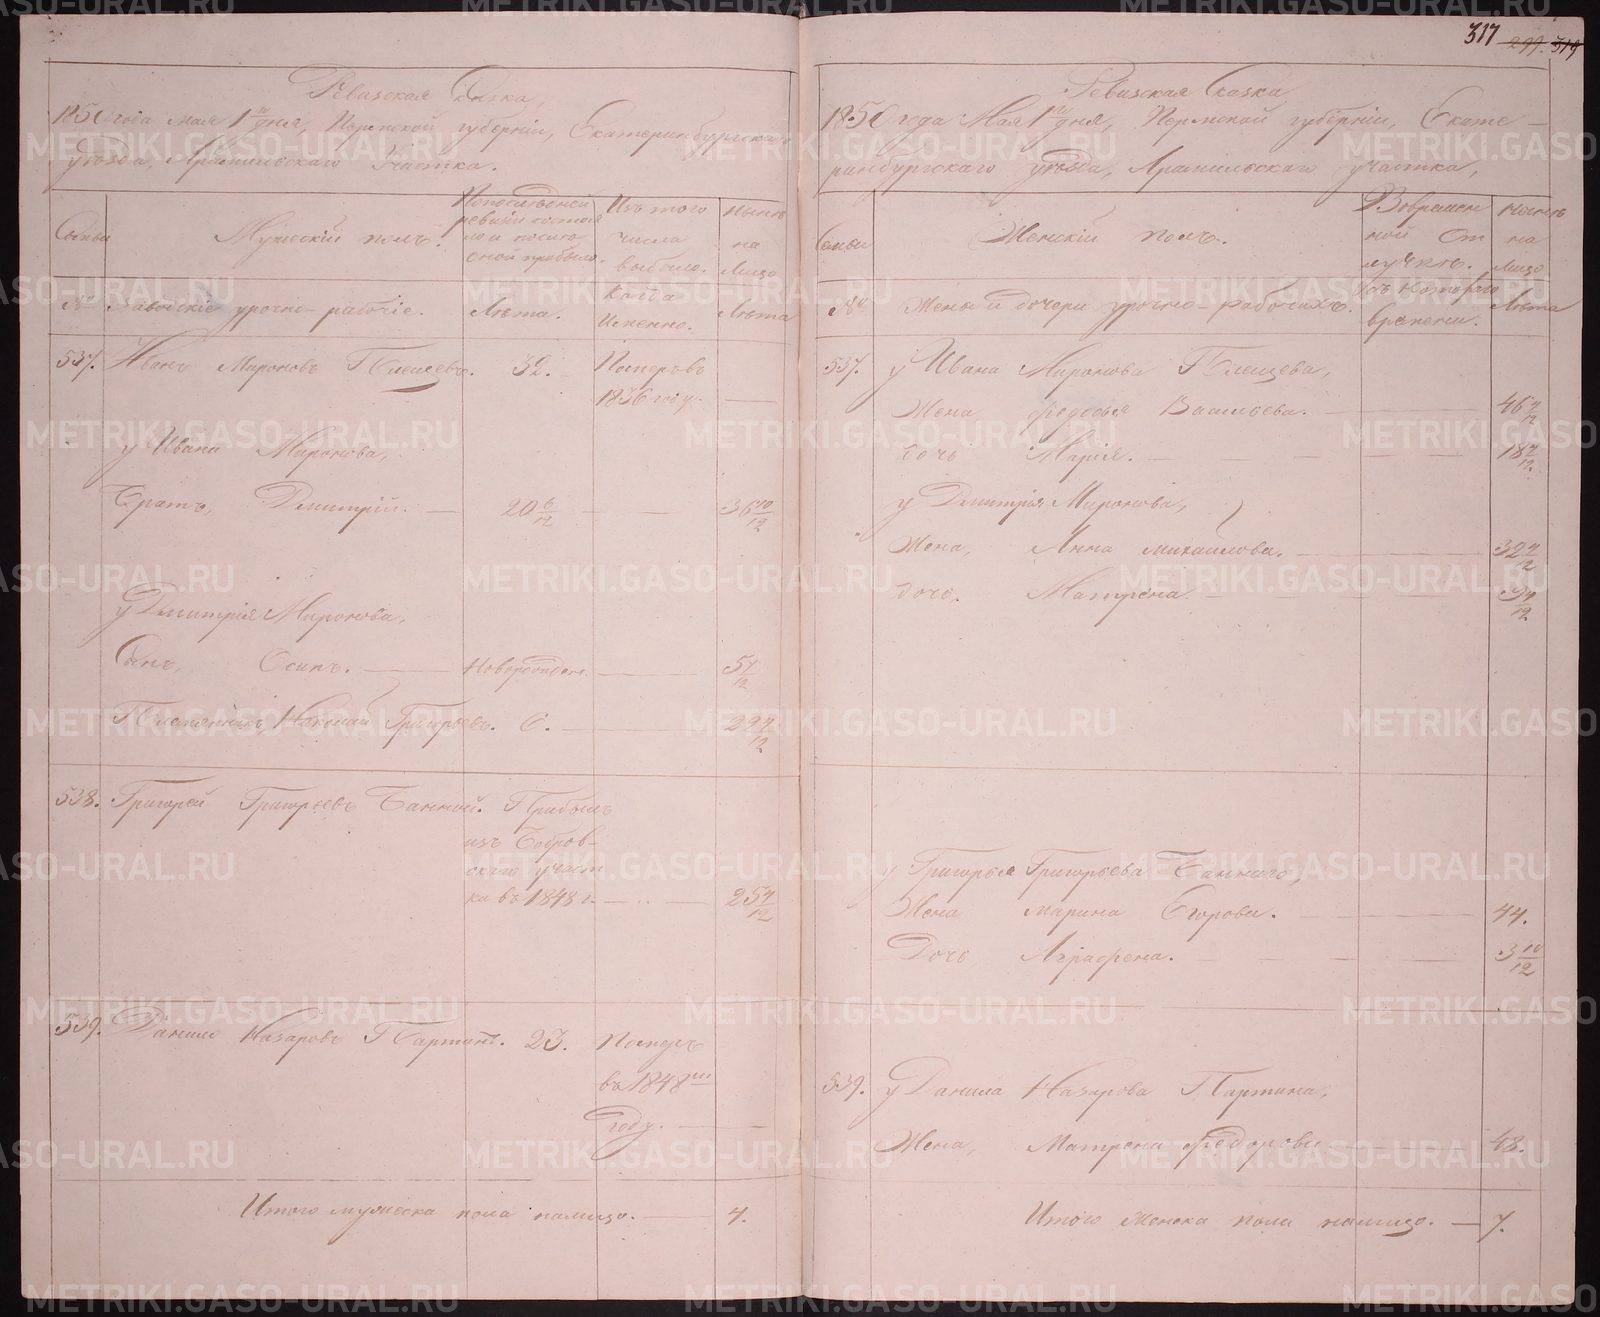 317 299. 319
Ревизская Сказка,
1850 года мая 1го дня, Пермской губернiи, Екатеринбургскаго
Уѣзда, Арамильскаго Участка.
Семьи
Мужескiй полъ.
По последней ревизiи состояло и после оной прибыло.
Изъ того числа выбыло.
Нынѣ на Лицо
№
Заводскiе урочно-рабочiе.
Лѣта.
Когда Именно.
Лѣта
537. Иванъ Мироновъ Плещевъ. 32. Померъ въ
1836 году. —
у Ивана Миронова,
Братъ, Дмитрiй. — 20 6/12 — — 36 10/12
у Дмитрiя Миронова,
Сынъ, Осипъ. — Новорожден. — 5 7/12
Племянникъ, Николай Григорьевъ. 6. — 29 7/12
538. Григорей Григорьевъ Банной. Прибылъ
изъ Бобров-
скаго участ
ка въ 1848 г. — — 25 7/12
539. Данило Назаровъ Партинъ. 23. Померъ
въ 1848мъ
году. —
Итого мужеска пола налицо. — 4.
Ревизская Сказка
1850 года Мая 1го дня, Пермской губернiи, Екате-
ринбургскаго уѣзда, Арамильскаго участка,
Семьи
Женскiй полъ.
Во времен
ной От
лучкѣ.
Нынѣ на Лицо
№
Жены и дочери урочно-рабочихъ.
Съ котораго
времени.
Лѣта
537. у Ивана Миронова Плещева,
Жена Федосья Васильева. — 46 7/12
дочь Марiя. — 18 7/12
у Дмитрiя Миронова,
Жена, Анна михайлова. — 32 7/12
дочь. Матрена. — 3 7/12
у Григорья Григорьева Баннаго,
Жена марина Егорова. — 44.
Дочь Аграфена. — 3 10/12
539. у Данила Назарова Партина,
Жена, Матрена Федорова — 48.
Итого женска пола налицо. — 7.
METRIKI.GASO-URAL.RU